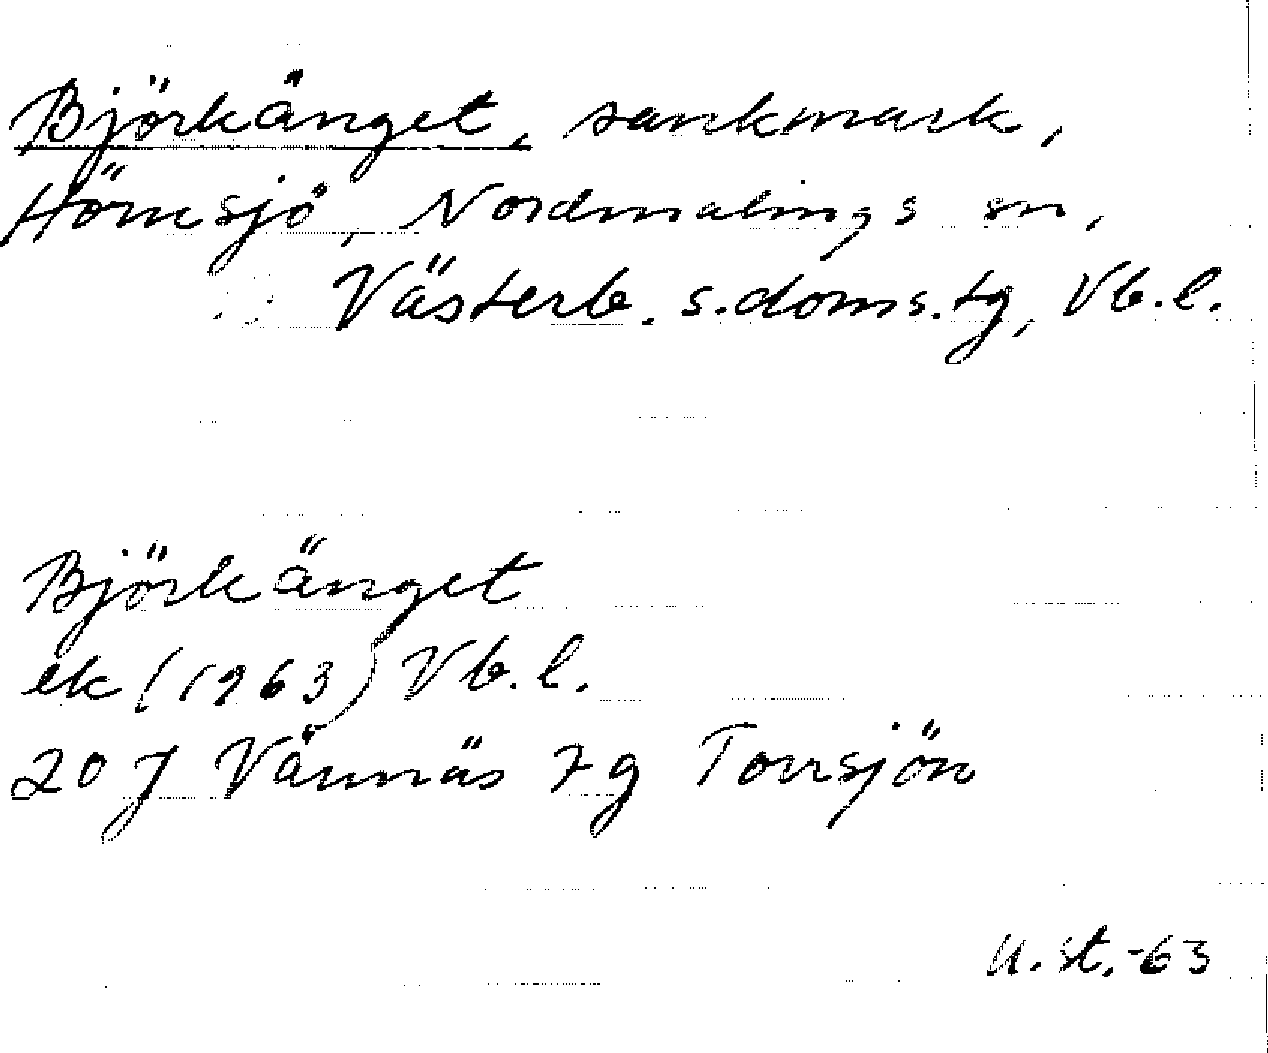 Björkänget, sankmark,
Hörnsjö, Nordmalings sn,
Västerb. s. doms. tg, Vb. l.
Björkänget
ek (1963) Vb. l.
20 J Vännäs 7 g Torrsjön
U. st. -63